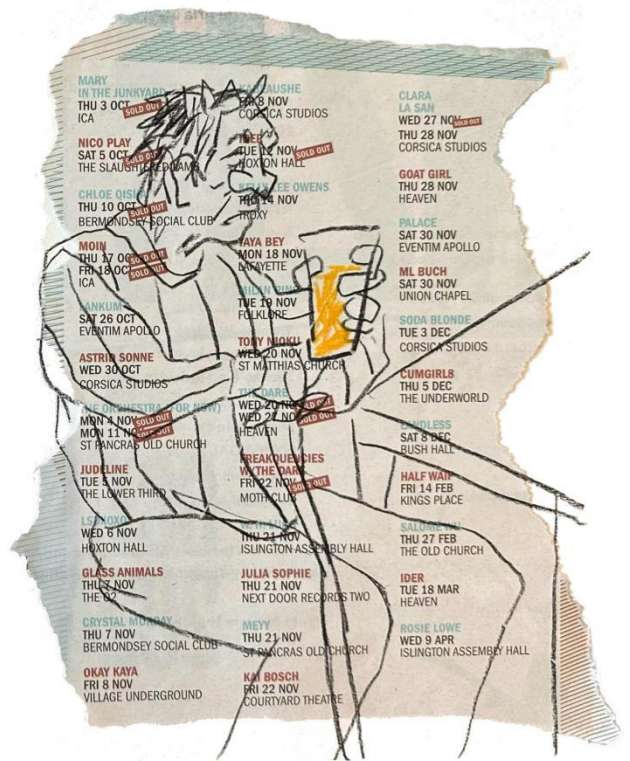 MARY
IN THE JUNKYARD
THU 3 OCT SOLD OUT
ICA
NICO PLAY
SAT 5 OCT SOLD OUT
THE SLAUGHTERED LAMB
CHLOE QISHA
THU 10 OCT SOLD OUT
BERMONDSEY SOCIAL CLUB
MOIN
THU 17 OCT SOLD OUT
FRI 18 OCT SOLD OUT
ICA
LANKUM
SAT 26 OCT
EVENTIM APOLLO
ASTRID SONNE
WED 30 OCT
CORSICA STUDIOS
THE ORCHESTRA (FOR NOW)
MON 4 NOV SOLD OUT
MON 11 NOV SOLD OUT
ST PANCRAS OLD CHURCH
JUDELINE
TUE 5 NOV
THE LOWER THIRD
WED 6 NOV
HOXTON HALL
GLASS ANIMALS
THU 7 NOV
THE O2
CRYSTAL MURRAY
THU 7 NOV
BERMONDSEY SOCIAL CLUB
OKAY KAYA
FRI 8 NOV
VILLAGE UNDERGROUND
FRI 8 NOV
CORSICA STUDIOS
TUE 12 NOV SOLD OUT
HOXTON HALL
KELLY LEE OWENS
THU 14 NOV
TROXY
YAYA BEY
MON 18 NOV
LAFAYETTE
MILAN RING
TUE 19 NOV
FOLKLORE
TONY NJOKU
WED 20 NOV
ST MATTHIAS CHURCH
THE DARE
WED 20 NOV SOLD OUT
WED 27 NOV SOLD OUT
HEAVEN
FREAKQUENCIES
W/THE DARE
FRI 22 NOV SOLD OUT
MOTH CLUB
W. H. LUNG
THU 21 NOV
ISLINGTON ASSEMBLY HALL
JULIA SOPHIE
THU 21 NOV
NEXT DOOR RECORDS TWO
MEYY
THU 21 NOV
ST PANCRAS OLD CHURCH
KAI BOSCH
FRI 22 NOV
COURTYARD THEATRE
CLARA
LA SAN
WED 27 NOV SOLD OUT
THU 28 NOV
CORSICA STUDIOS
GOAT GIRL
THU 28 NOV
HEAVEN
PALACE
SAT 30 NOV
EVENTIM APOLLO
ML BUCH
SAT 30 NOV
UNION CHAPEL
SODA BLONDE
TUE 3 DEC
CORSICA STUDIOS
CUMGIRL8
THU 5 DEC
THE UNDERWORLD
LANDLESS
SAT 8 DEC
BUSH HALL
HALF WAIF
FRI 14 FEB
KINGS PLACE
SALOME WU
THU 27 FEB
THE OLD CHURCH
IDER
TUE 18 MAR
HEAVEN
ROSIE LOWE
WED 9 APR
ISLINGTON ASSEMBLY HALL